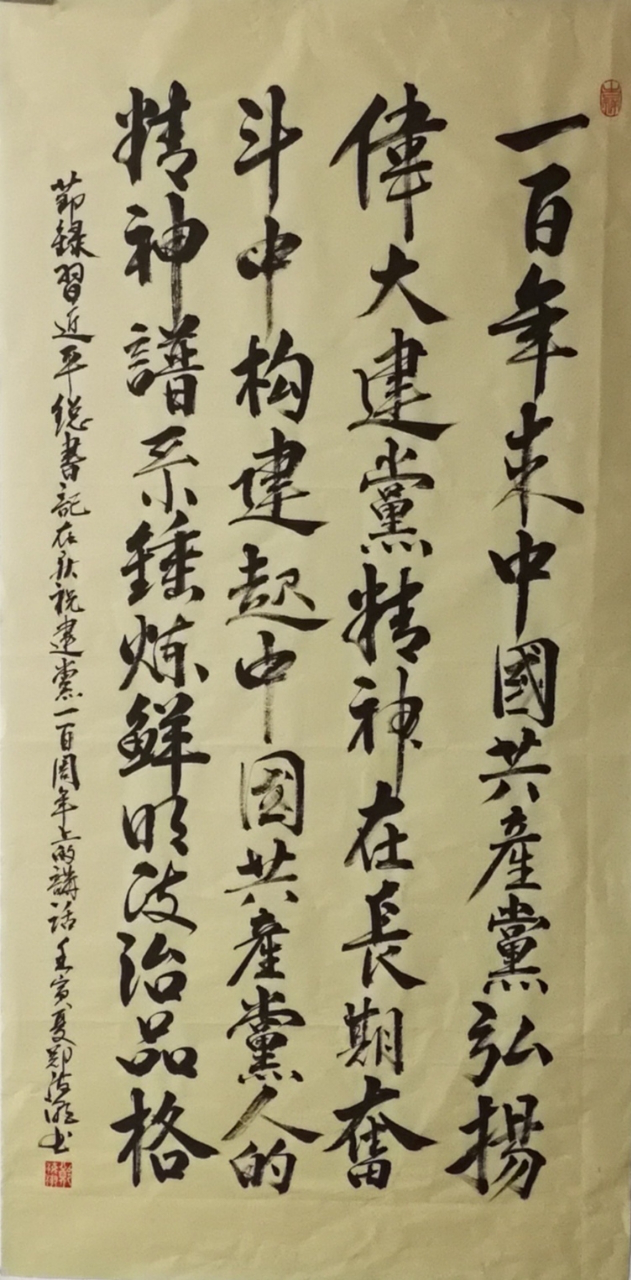 一百年来中國共產黨弘揚
偉大建黨精神在長期奮
斗中构建起中国共產黨人的
精神譜系錘炼鮮明政治品格
節録習近平總書記在慶祝建黨一百周年上的講話壬寅夏鄭